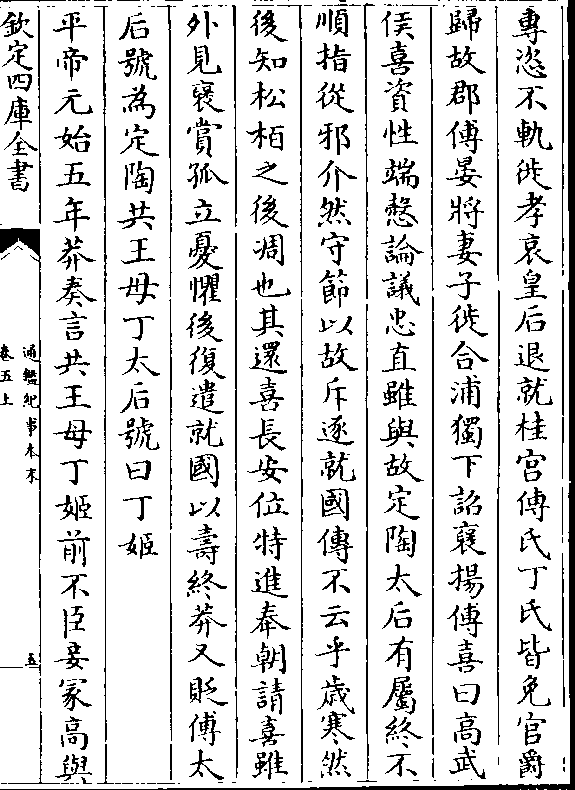 專恣不軌徙孝哀皇后退就桂宫傅氏丁氏皆免官爵
歸故郡傅晏將妻子徙合浦獨下詔襃揚傅喜曰高武
侯喜資性端慤論議忠直雖與故定陶太后有屬終不
順指從邪介然守節以故斥逐就國傳不云乎歲寒然
後知松栢之後凋也其還喜長安位特進奉朝請喜雖
外見襃賞孤立憂懼後復遣就國以壽終莽又貶傅太
后號為定陶共王母丁太后號曰丁姬
平帝元始五年莽奏言共王母丁姬前不臣妾冢高與
欽定四庫全書
通鑑紀事本末
卷五上
五